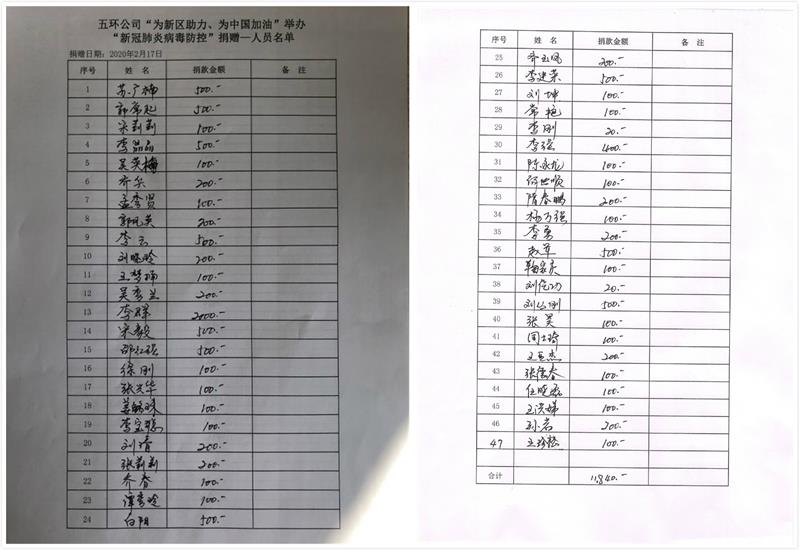 五环公司“为新区助力、为中国加油”举办
“新冠肺炎病毒防控”捐赠一人员名单
捐赠日期：2020年2月17日
序号 姓 名 捐款金额 备 注
1 苏广楠 500.-
2 郭常起 500.-
3 宋莉莉 100.-
4 李晶晶 500.-
5 吴英梅 100.-
6 齐乐 200.-
7 孟秀贤 100.-
8 郭凤英 200.-
9 李云 500.-
10 刘晓玲 200.-
11 王梦楠 100.-
12 吴秀兰 200.-
13 李群 2000.-
14 宋毅 500.-
15 邵红 500.-
16 徐刚 100.-
17 张兴华 100.-
18 100.-
19 李宝 100.-
20 刘靖 200.-
21 张莉莉 200.-
22 乔春 100.-
23 谭秀玲 100.-
24 白阳 500.-
序号 姓 名 捐款金额 备 注
25 齐玉凤 200.-
26 李建荣 500.-
27 刘坤 100.-
28 常艳 100.-
29 李刚 20.-
30 李强 400.-
31 陈永龙 100.-
32 何世顺 100.-
33 隋春鹏 200.-
34 杨万强 100.-
35 李勇 200.-
36 赵军 500.-
37 100.-
38 刘 20.-
39 刘 500.-
40 张昊 100.-
41 100.-
42 王 杰 200.-
43 张 春 100.-
44 任晓 100.-
45 王洪娣 100.-
46 孙岩 200.-
47 王 100.-
合计 11,840.-